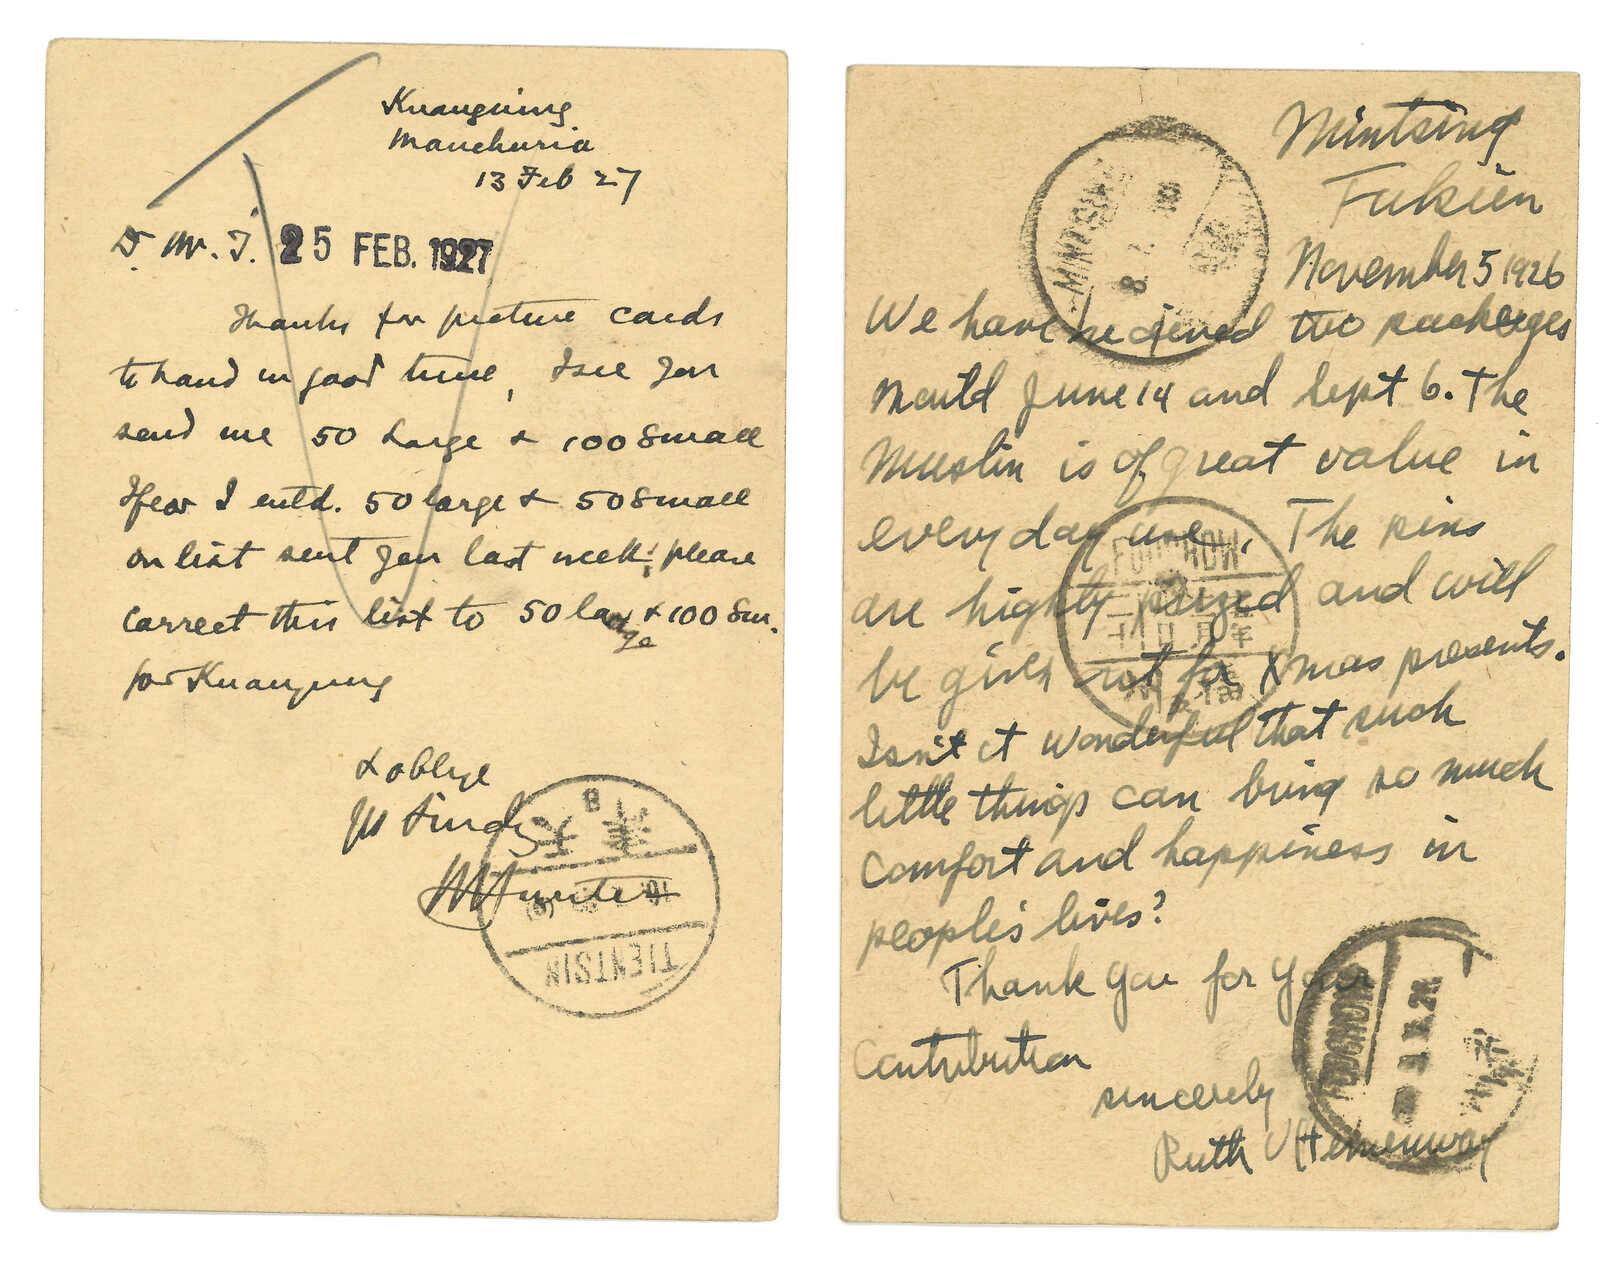 Kuangning
Manchuria
13 Feb 27
Dr Mr. T.
25 FEB. 1927
Thanks for picture cards
to hand in good time, I see you
send me 50 Large & 100 Small
I fear I entd. 50 large & 50 Small
on list sent you last week; please
correct this list to 50 large & 100 Sm.
for Kuangning
& oblige
yrs Sindy
Hunter
B
津天
TIENTSIN
Mintsing
Fukien
November 5 1926
MINTSING
We have recieved two packeges
mailed June 14 and Sept 6. The
muslin is of great value in
everyday use. The pins
FOOCHOW
are highly prized and will
be given out for Xmas presents.
Isn't it wonderful that such
little things can bring so much
comfort and happiness in
people's lives?
Thank you for your
contribution
FOOCHOW
sincerely
Ruth V Hemenway